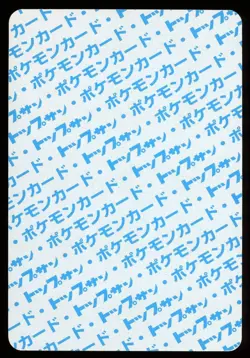 トップサン・
ポケモンカード・
トップサン・ポケモンカード・
ポケモンカード・トップサン・
トップサン・ポケモンカード・
ポケモンカード・トップサン・
トップサン・ポケモンカード・
ポケモンカード・トップサン・
トップサン・ポケモンカード・
ポケモンカード・トップサン・
トップサン・ポケモンカード・
ポケモンカード・トップサン・
トップサン・ポケモンカード・
ポケモンカード・
トップサン・